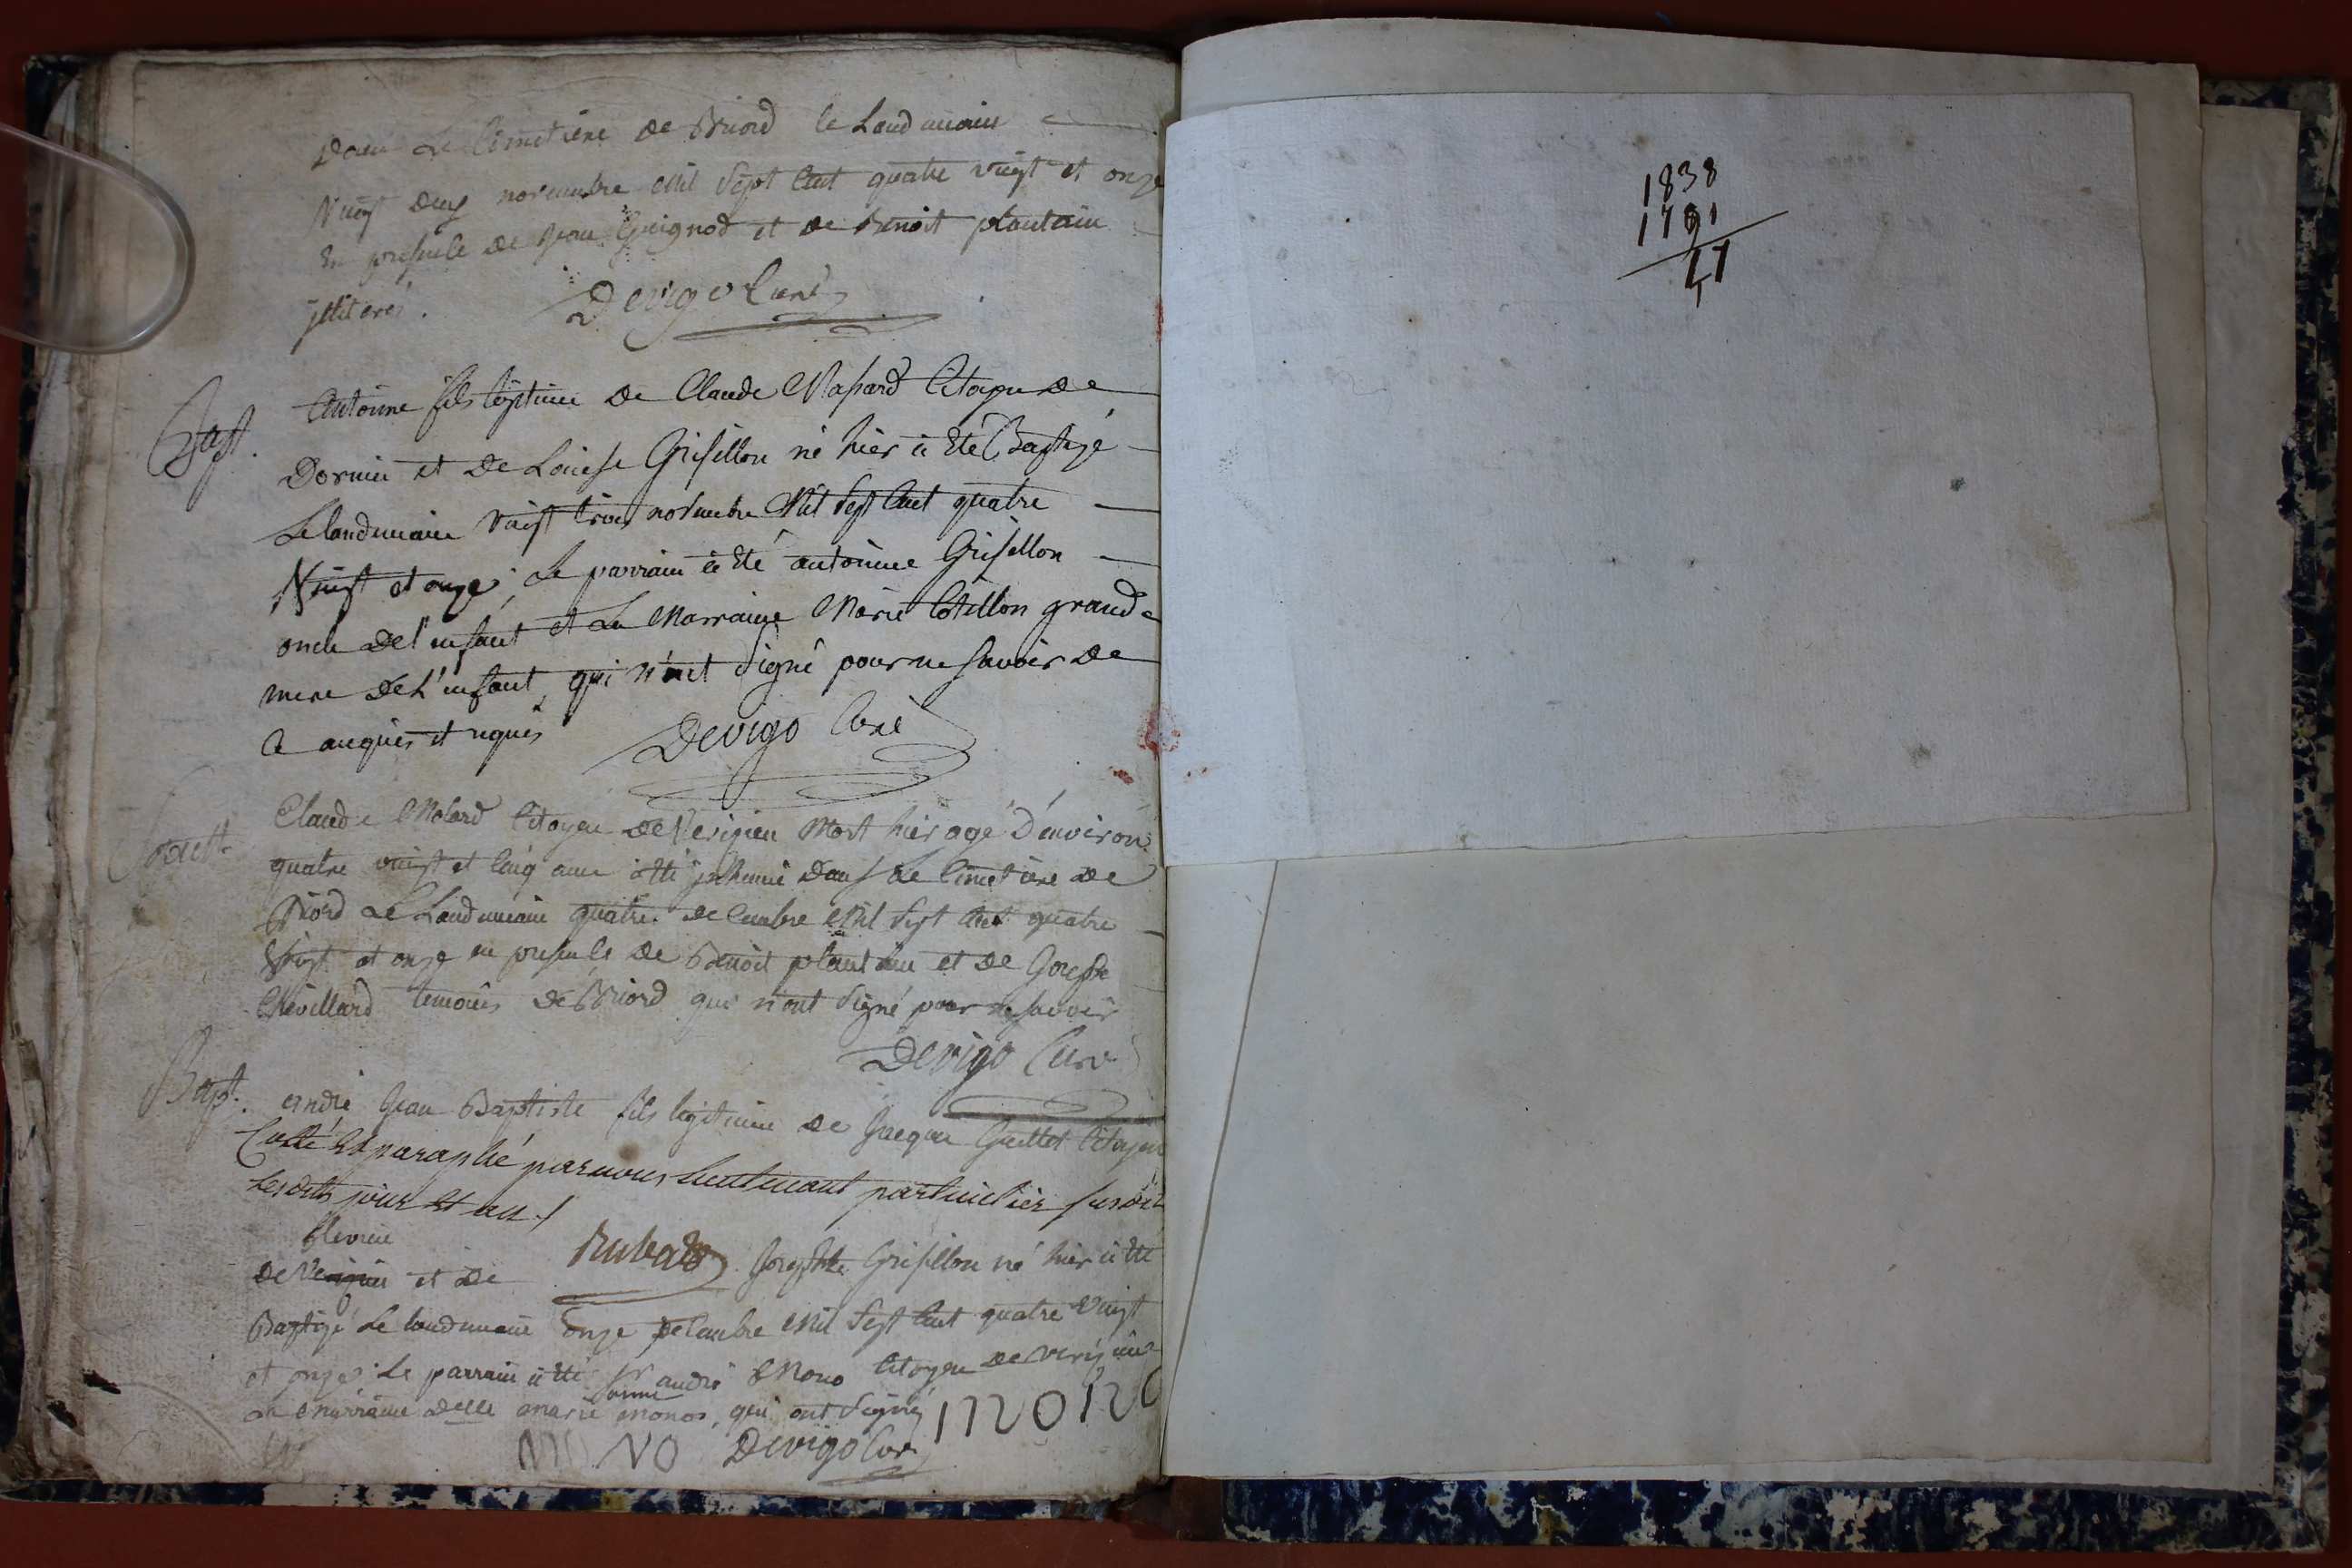 dans le Cimetiere de Briord le Landemain
Vingt deux novembre mil Sept Cent quatre vingt et onze
En presence de Jean Guignod et de Benoit plantain
jlliterés. Devigo Curé
Bapt. Antoine fils legitime de Claude Masard Citoyen de
Dornieu et de Louise Grisillon né hier à Eté Baptizé
Le landemain Vingt trois novembre Mil Sept Cent quatre
Vingt et onze, Le parrain à Eté antoinne Grisillon
oncle de l'enfant et La Marraine Marie Cotillon grand
mere de L'enfant, qui n'ont Signé pour ne Savoir de
ce anquis et requis Devigo Curé
Claude Molard Citoyen de Verizieu Mort hier agé d'environ
quatre vingt et Cinq ans à Eté jnhumé dans Le Cimetiere de
Briord Le Landemain quatre decembre Mil Sept Cent quatre
Vingt et onze en presence de Benoit plantain et de Joseph
Chevillard temoins de Briord qui n'ont Signé pour ne Savoir
Devigo Curé
Bapt. andré Jean Baptiste fils legitime de Jacque Guillet Citoyen
Cotté Et paraphé par nous Lieutenant particulier susdit
Lesdits jour Et an
de et de Rubat Josephte Grisillon né hier à Eté
Baptizé Le landemain onze decembre Mil Sept Cent quatre Vingt
et onze Le parrain à Eté Sr andré Mono Citoyen de Verizieu
La Marraine delle marie anne monos, qui ont Signé
MO NO Devigo Curé
1838
1791
47